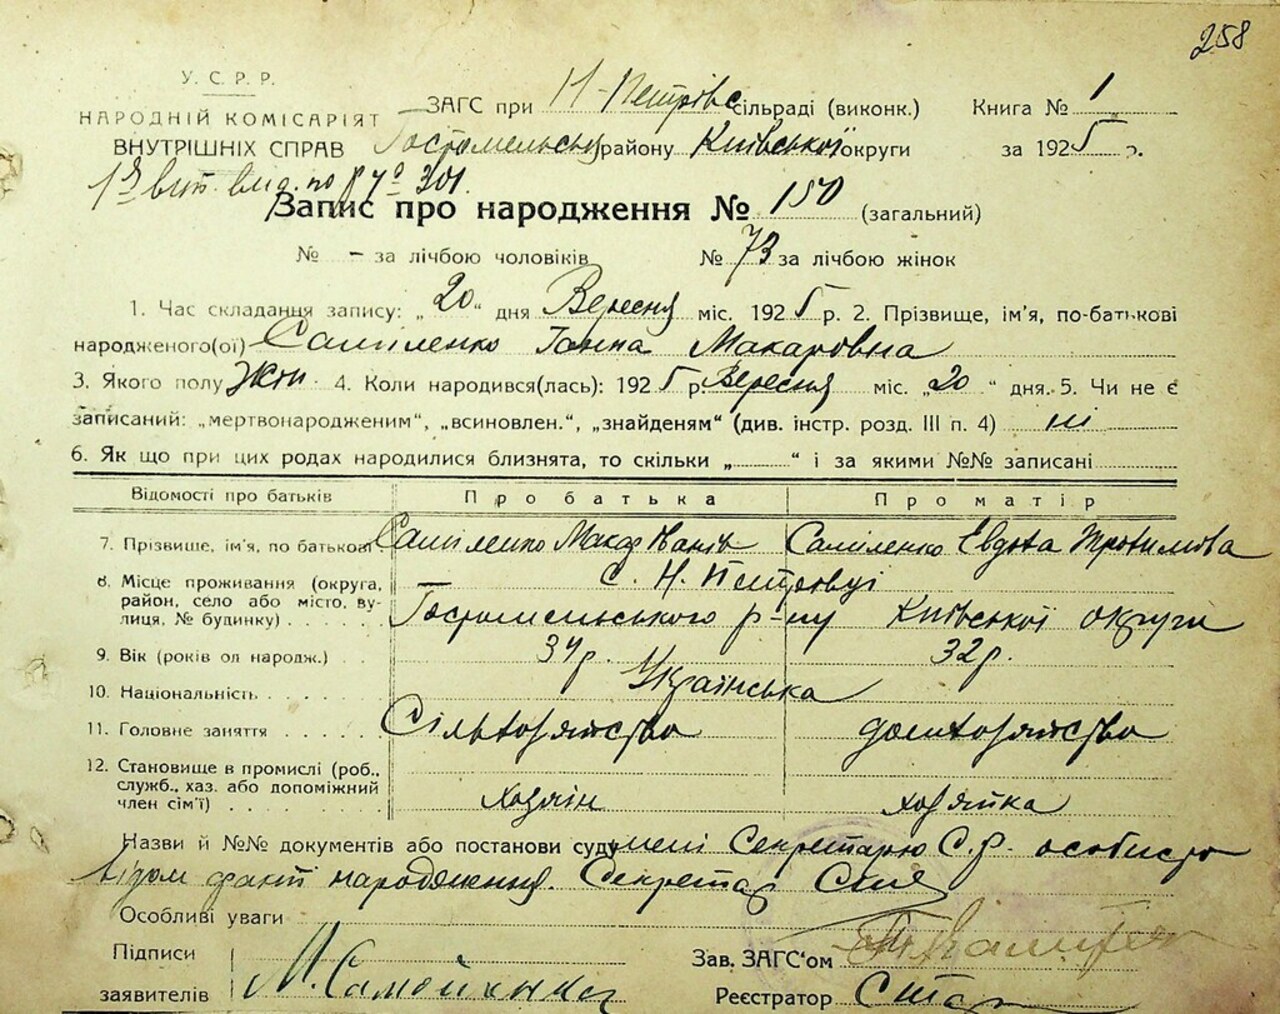 258
У. С. Р. Р.
НАРОДНІЙ КОМІСАРІЯТ
ВНУТРІШНІХ СПРАВ
ЗАГС при Н-Петрівс сільраді (виконк.) Книга № 1
Гостомельськ району Київської округи за 1925 р.
Запис про народження № 150 (загальний)
№ - за лічбою чоловіків № 73 за лічбою жінок
1. Час складання запису: „20“ дня Вересня міс. 1925 р. 2. Прізвище, ім'я, по-батькові
народженого(ої) Саміленко Ганна Макаровна
3. Якого полу жін. 4. Коли народився(лась): 1925 р. Вересня міс. „20“ дня. 5. Чи не є
записаний: „мертвонародженим“, „всиновлен.“, „знайденям“ (див. інстр. розд. III п. 4) ні
6. Як що при цих родах народилися близнята, то скільки „ “ і за якими №№ записані
Відомості про батьків Про батька Про матір
7. Прізвище, ім'я, по батькові Саміленко Макар Іванів Саміленко Евдоха Трохимова
8. Місце проживання (округа, район, село або місто, вулиця, № будинку) с. Н. Петровці
Гостомельського р-ну Київської округи
9. Вік (років од народж.) 34 р. 32 р.
10. Національність Українська
11. Головне заняття Сільхозяйство домхозяйство
12. Становище в промислі (роб., служб., хаз. або допоміжний член сім'ї) хозяїн хозяйка
Назви й №№ документів або постанови суду мені Секретарю С.Р. особисто
відом факт народження. Секретар
Особливі уваги
Підписи
заявителів М. Самойленко
Зав. ЗАГС'ом
Реєстратор